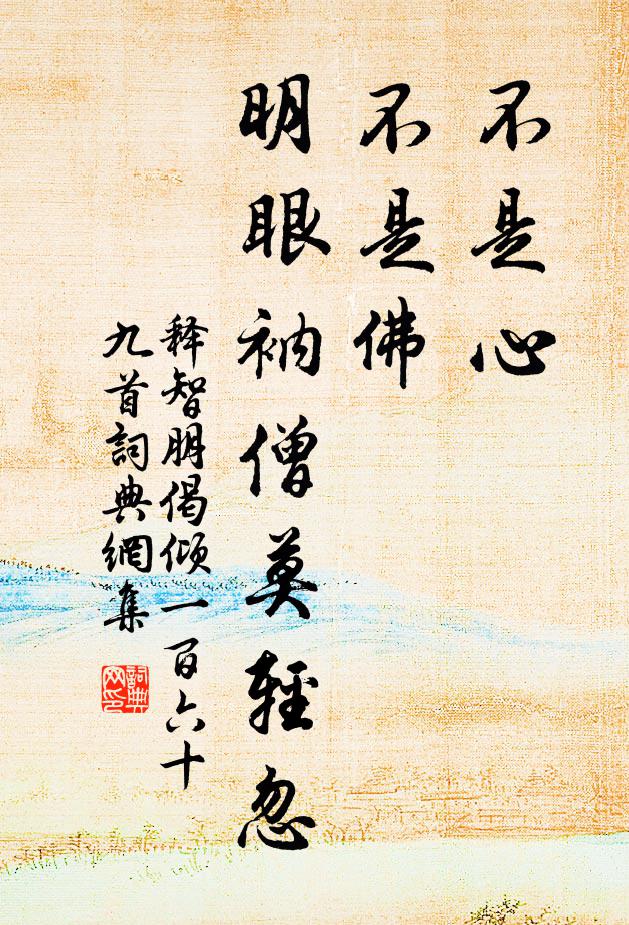 不是心
不是佛
明眼衲僧莫輕忽
释智朋偈倾一百六十
九首詞典網集
詞典
网印